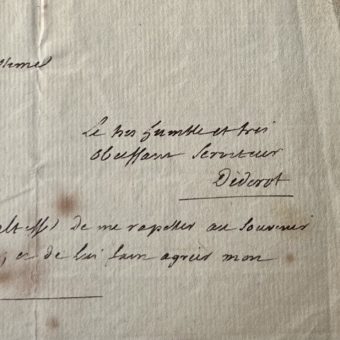 Le tres humble et tres
obeissant serviteur
Diderot
de me rapeller au souvenir
, et de lui faire agreer mon